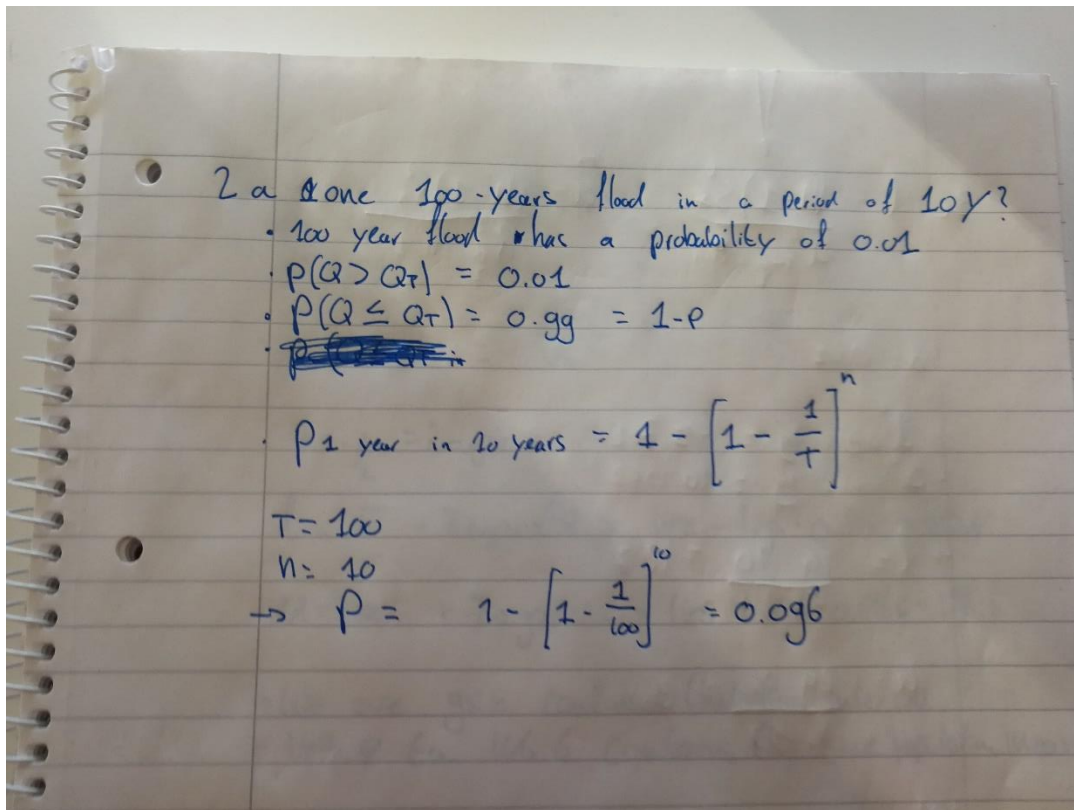 2 a one 100-years flood in a period of 10y?
· 100 year flood has a probability of 0.01
· P(Q > QT) = 0.01
· P(Q ≤ QT) = 0.99 = 1-P
· P1 year in 10 years = 1 - [1 - 1/T]^n
T = 100
n = 10
→ P = 1 - [1 - 1/100]^10 = 0.096